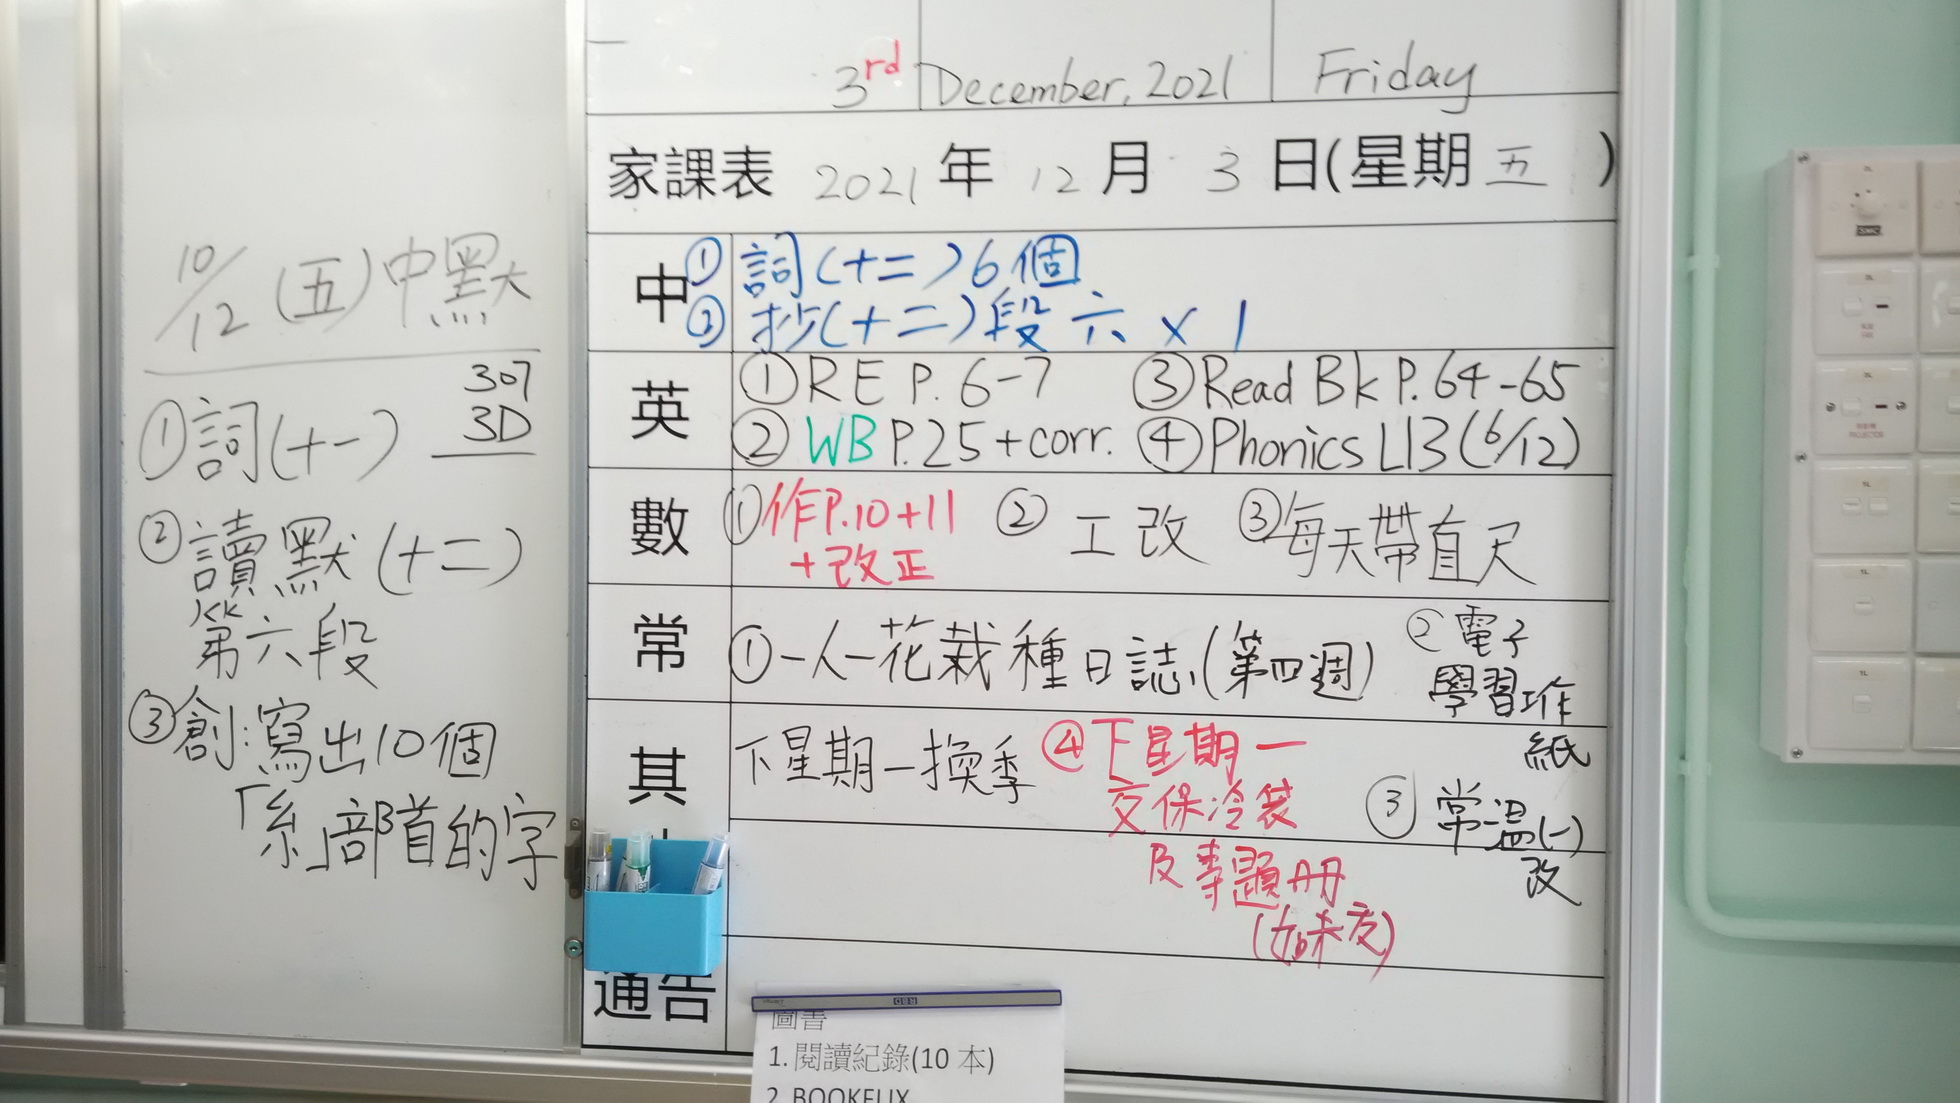 10/12 (五)中默
307
3D
①詞(十一)
②讀默(十二)
第六段
③創:寫出10個
「糸」部首的字
3rd December, 2021 Friday
家課表 2021 年 12 月 3 日(星期 五 )
中 ①詞(十二)6個
②抄(十二)段六 x 1
英 ①RE P. 6-7 ③Read Bk P. 64-65
②WB P.25+corr. ④Phonics L13 (6/12)
數 ①作P.10+11 ②工改 ③每天帶直尺
+改正
常 ①一人一花栽種日誌(第四週) ②電子
學習工作
紙
③常溫(一)
改
④下星期一
交保冷袋
及專題冊
(如未交)
其 下星期一換季
通告
圖書
1. 閱讀紀錄(10 本)
2. BOOKFLIX